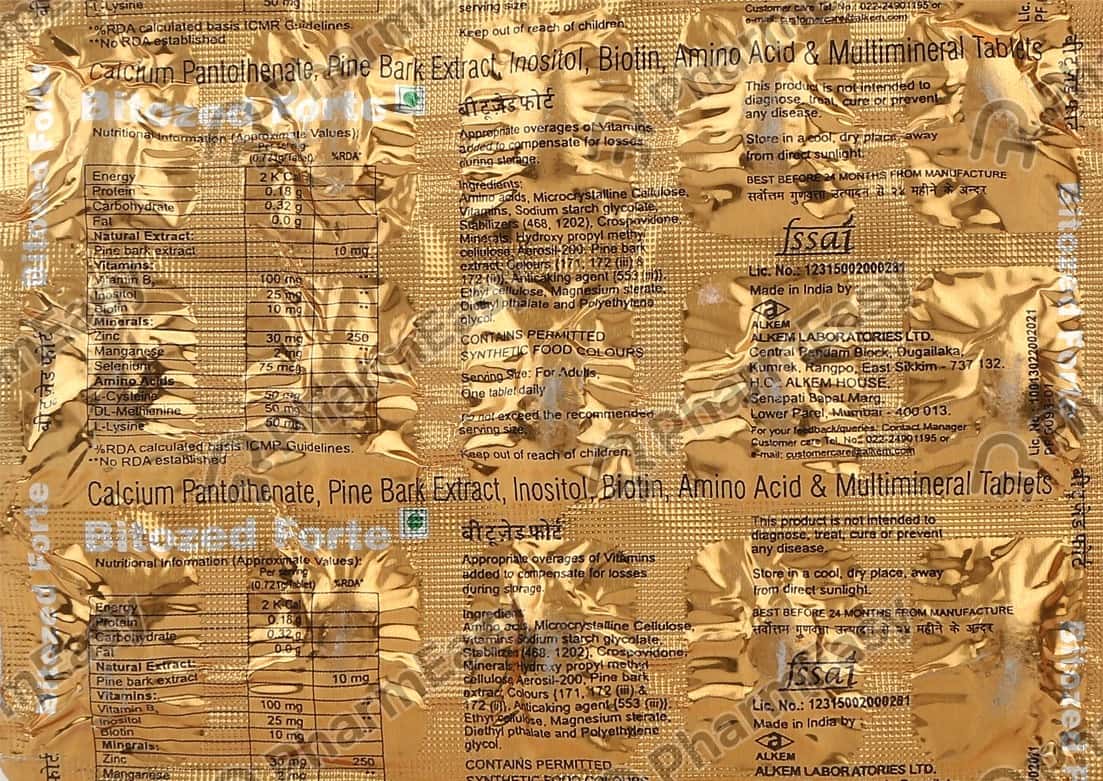 L-Lysine 50 mg
*%RDA calculated basis ICMR Guidelines.
**No RDA established
serving size.
Keep out of reach of children.
Customer care Tel. No.: 022-24901195 or
e-mail: customercare@alkem.com
Calcium Pantothenate, Pine Bark Extract, Inositol, Biotin, Amino Acid & Multimineral Tablets
Bitozed Forte
Nutritional Information (Approximate Values):
Per serving
(0.721g/Tablet) %RDA*
Energy 2 K Cal
Protein 0.18 g
Carbohydrate 0.32 g
Fat 0.0 g
Natural Extract:
Pine bark extract 10 mg
Vitamins:
Vitamin B5 100 mg **
Inositol 25 mg **
Biotin 10 mg **
Minerals:
Zinc 30 mg 250
Manganese 2 mg **
Selenium 75 mcg **
Amino Acids
L-Cysteine 50 mg
DL-Methienine 50 mg
L-Lysine 50 mg
*%RDA calculated basis ICMR Guidelines.
**No RDA established
बीटूज़ेड फोर्ट
Appropriate overages of Vitamins
added to compensate for losses
during storage.
Ingredients:
Amino acids, Microcrystalline Cellulose,
Vitamins, Sodium starch glycolate,
Stabilizers (468, 1202), Crospovidone,
Minerals, Hydroxy propyl methyl
cellulose, Aerosil-200, Pine bark
extract, Colours {171, 172 (iii) &
172 (ii)}, Anticaking agent {553 (iii)},
Ethyl cellulose, Magnesium sterate,
Diethyl pthalate and Polyethylene
glycol.
CONTAINS PERMITTED
SYNTHETIC FOOD COLOURS
Serving Size: For Adults,
One tablet daily
Do not exceed the recommended
serving size.
Keep out of reach of children.
This product is not intended to
diagnose, treat, cure or prevent
any disease.
Store in a cool, dry place, away
from direct sunlight.
BEST BEFORE 24 MONTHS FROM MANUFACTURE
सर्वोत्तम गुणवत्ता उत्पादन से २४ महीने के अन्दर
fssai
Lic. No.: 12315002000281
Made in India by :
ALKEM
ALKEM LABORATORIES LTD.
Central Pendam Block, Dugailaka,
Kumrek, Rangpo, East Sikkim - 737 132.
H.O.: ALKEM HOUSE,
Senapati Bapat Marg,
Lower Parel, Mumbai - 400 013.
For your feedback/queries: Contact Manager
Customer care Tel. No.: 022-24901195 or
e-mail: customercare@alkem.com
Bitozed Forte
बीटूज़ेड फोर्ट
Calcium Pantothenate, Pine Bark Extract, Inositol, Biotin, Amino Acid & Multimineral Tablets
Bitozed Forte
Nutritional Information (Approximate Values):
Per serving
(0.721g/Tablet) %RDA*
Energy 2 K Cal
Protein 0.18 g
Carbohydrate 0.32 g
Fat 0.0 g
Natural Extract:
Pine bark extract 10 mg
Vitamins:
Vitamin B5 100 mg
Inositol 25 mg
Biotin 10 mg
Minerals:
Zinc 30 mg 250
Manganese 2 mg **
बीटूज़ेड फोर्ट
Appropriate overages of Vitamins
added to compensate for losses
during storage.
Ingredients:
Amino acids, Microcrystalline Cellulose,
Vitamins, Sodium starch glycolate,
Stabilizers (468, 1202), Crospovidone,
Minerals, Hydroxy propyl methyl
cellulose, Aerosil-200, Pine bark
extract, Colours {171, 172 (iii) &
172 (ii)}, Anticaking agent {553 (iii)},
Ethyl cellulose, Magnesium sterate,
Diethyl pthalate and Polyethylene
glycol.
CONTAINS PERMITTED
SYNTHETIC FOOD COLOURS
This product is not intended to
diagnose, treat, cure or prevent
any disease.
Store in a cool, dry place, away
from direct sunlight.
BEST BEFORE 24 MONTHS FROM MANUFACTURE
सर्वोत्तम गुणवत्ता उत्पादन से २४ महीने के अन्दर
fssai
Lic. No.: 12315002000281
Made in India by :
ALKEM
ALKEM LABORATORIES LTD.
Bitozed Forte
PharmEasy